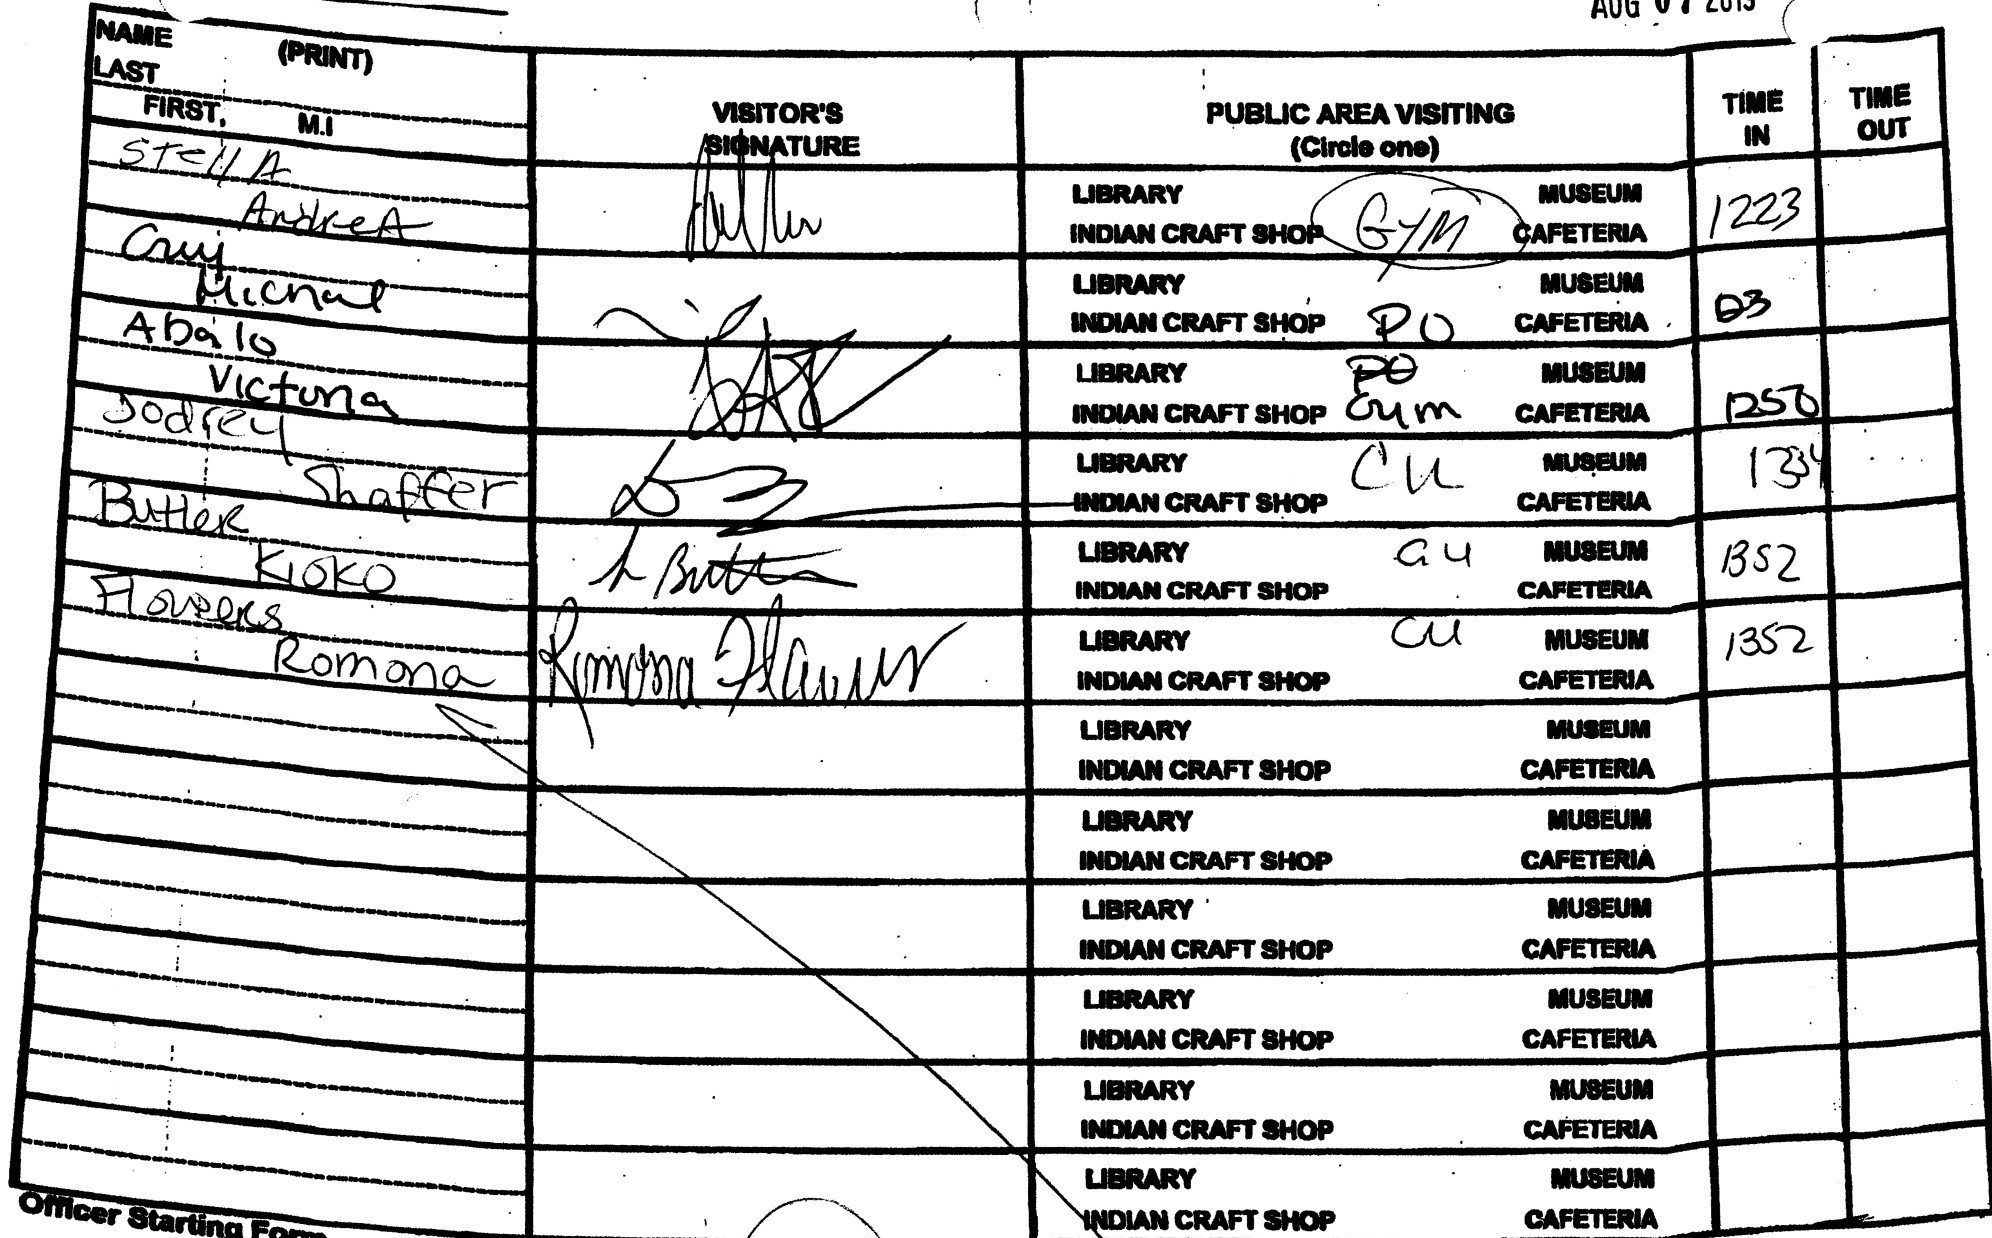 AUG 07 2015
NAME (PRINT)
LAST
FIRST, M.I
VISITOR'S
SIGNATURE
PUBLIC AREA VISITING
(Circle one)
TIME
IN
TIME
OUT
STELLA
AndreA
LIBRARY MUSEUM
INDIAN CRAFT SHOP GYM CAFETERIA
1223
Cruz
Michael
LIBRARY MUSEUM
INDIAN CRAFT SHOP PO CAFETERIA
Abalo
Victoria
LIBRARY PO MUSEUM
INDIAN CRAFT SHOP Gym CAFETERIA
1250
Dodrey
Shaffer
LIBRARY CU MUSEUM
INDIAN CRAFT SHOP CAFETERIA
1334
Butler
KIOKO
LIBRARY CU MUSEUM
INDIAN CRAFT SHOP CAFETERIA
1352
Flowers
Romona
Romona Flowers
LIBRARY CU MUSEUM
INDIAN CRAFT SHOP CAFETERIA
1352
LIBRARY MUSEUM
INDIAN CRAFT SHOP CAFETERIA
LIBRARY MUSEUM
INDIAN CRAFT SHOP CAFETERIA
LIBRARY MUSEUM
INDIAN CRAFT SHOP CAFETERIA
LIBRARY MUSEUM
INDIAN CRAFT SHOP CAFETERIA
LIBRARY MUSEUM
INDIAN CRAFT SHOP CAFETERIA
LIBRARY MUSEUM
INDIAN CRAFT SHOP CAFETERIA
Officer Starting Form